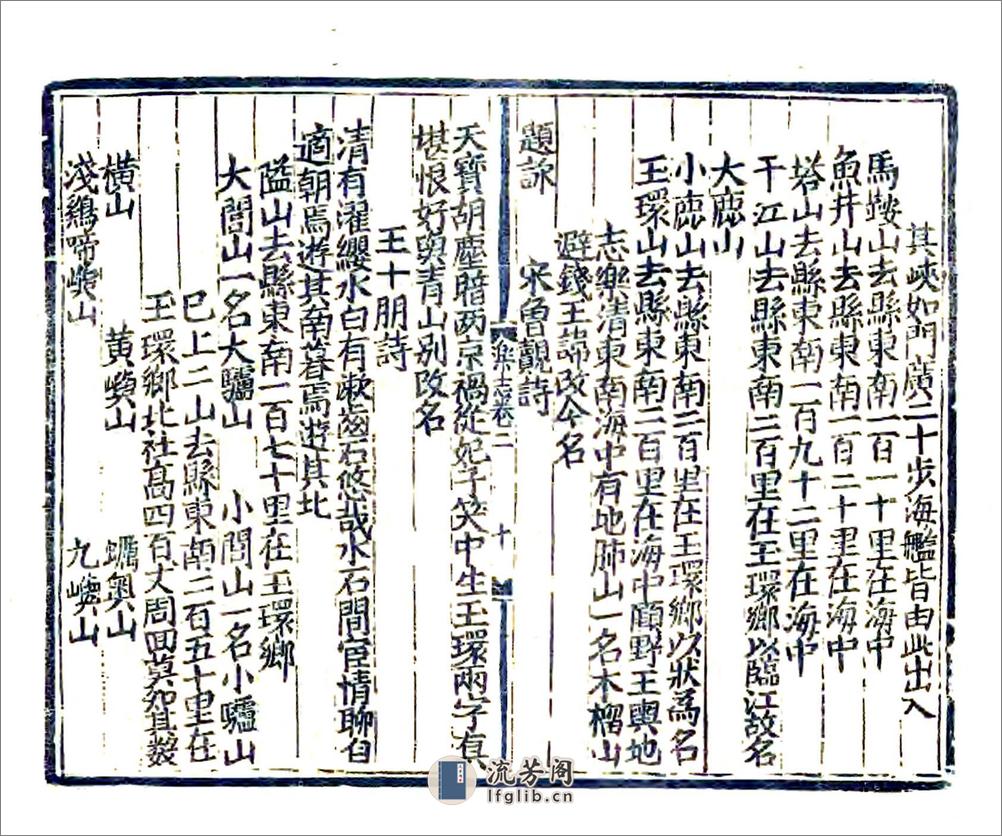 其峽如門廣二十步海艦皆由此出入
馬鞍山去縣東南一百一十里在海中
魚井山去縣東南一百二十里在海中
塔山去縣東南一百九十二里在海中
干江山去縣東南二百里在玉環鄉以臨江故名
大鹿山
小鹿山去縣東南二百里在玉環鄉以狀爲名
玉環山去縣東南二百里在海中顧野王輿地
志樂清東南海中有地肺山一名木榴山
避錢王諱改今名
題詠
宋魯覿詩
樂志卷二
十
天寶胡塵暗两京禍從妃子笑中生玉環兩字真
堪恨好與青山别改名
王十朋詩
清有濯纓水白有漱齒石悠哉水石間宦情聊自
適朝焉遊其南暮焉遊其北
隘山去縣東南一百七十里在玉環鄉
大閭山一名大驢山 小閭山一名小驢山
已上二山去縣東南二百五十里在
玉環鄉北社高四百丈周回莫知其數
橫山 黃嶴山 蠣奧山
淺鷄啼嶼山 九嶼山
流芳阁
lfglib.cn